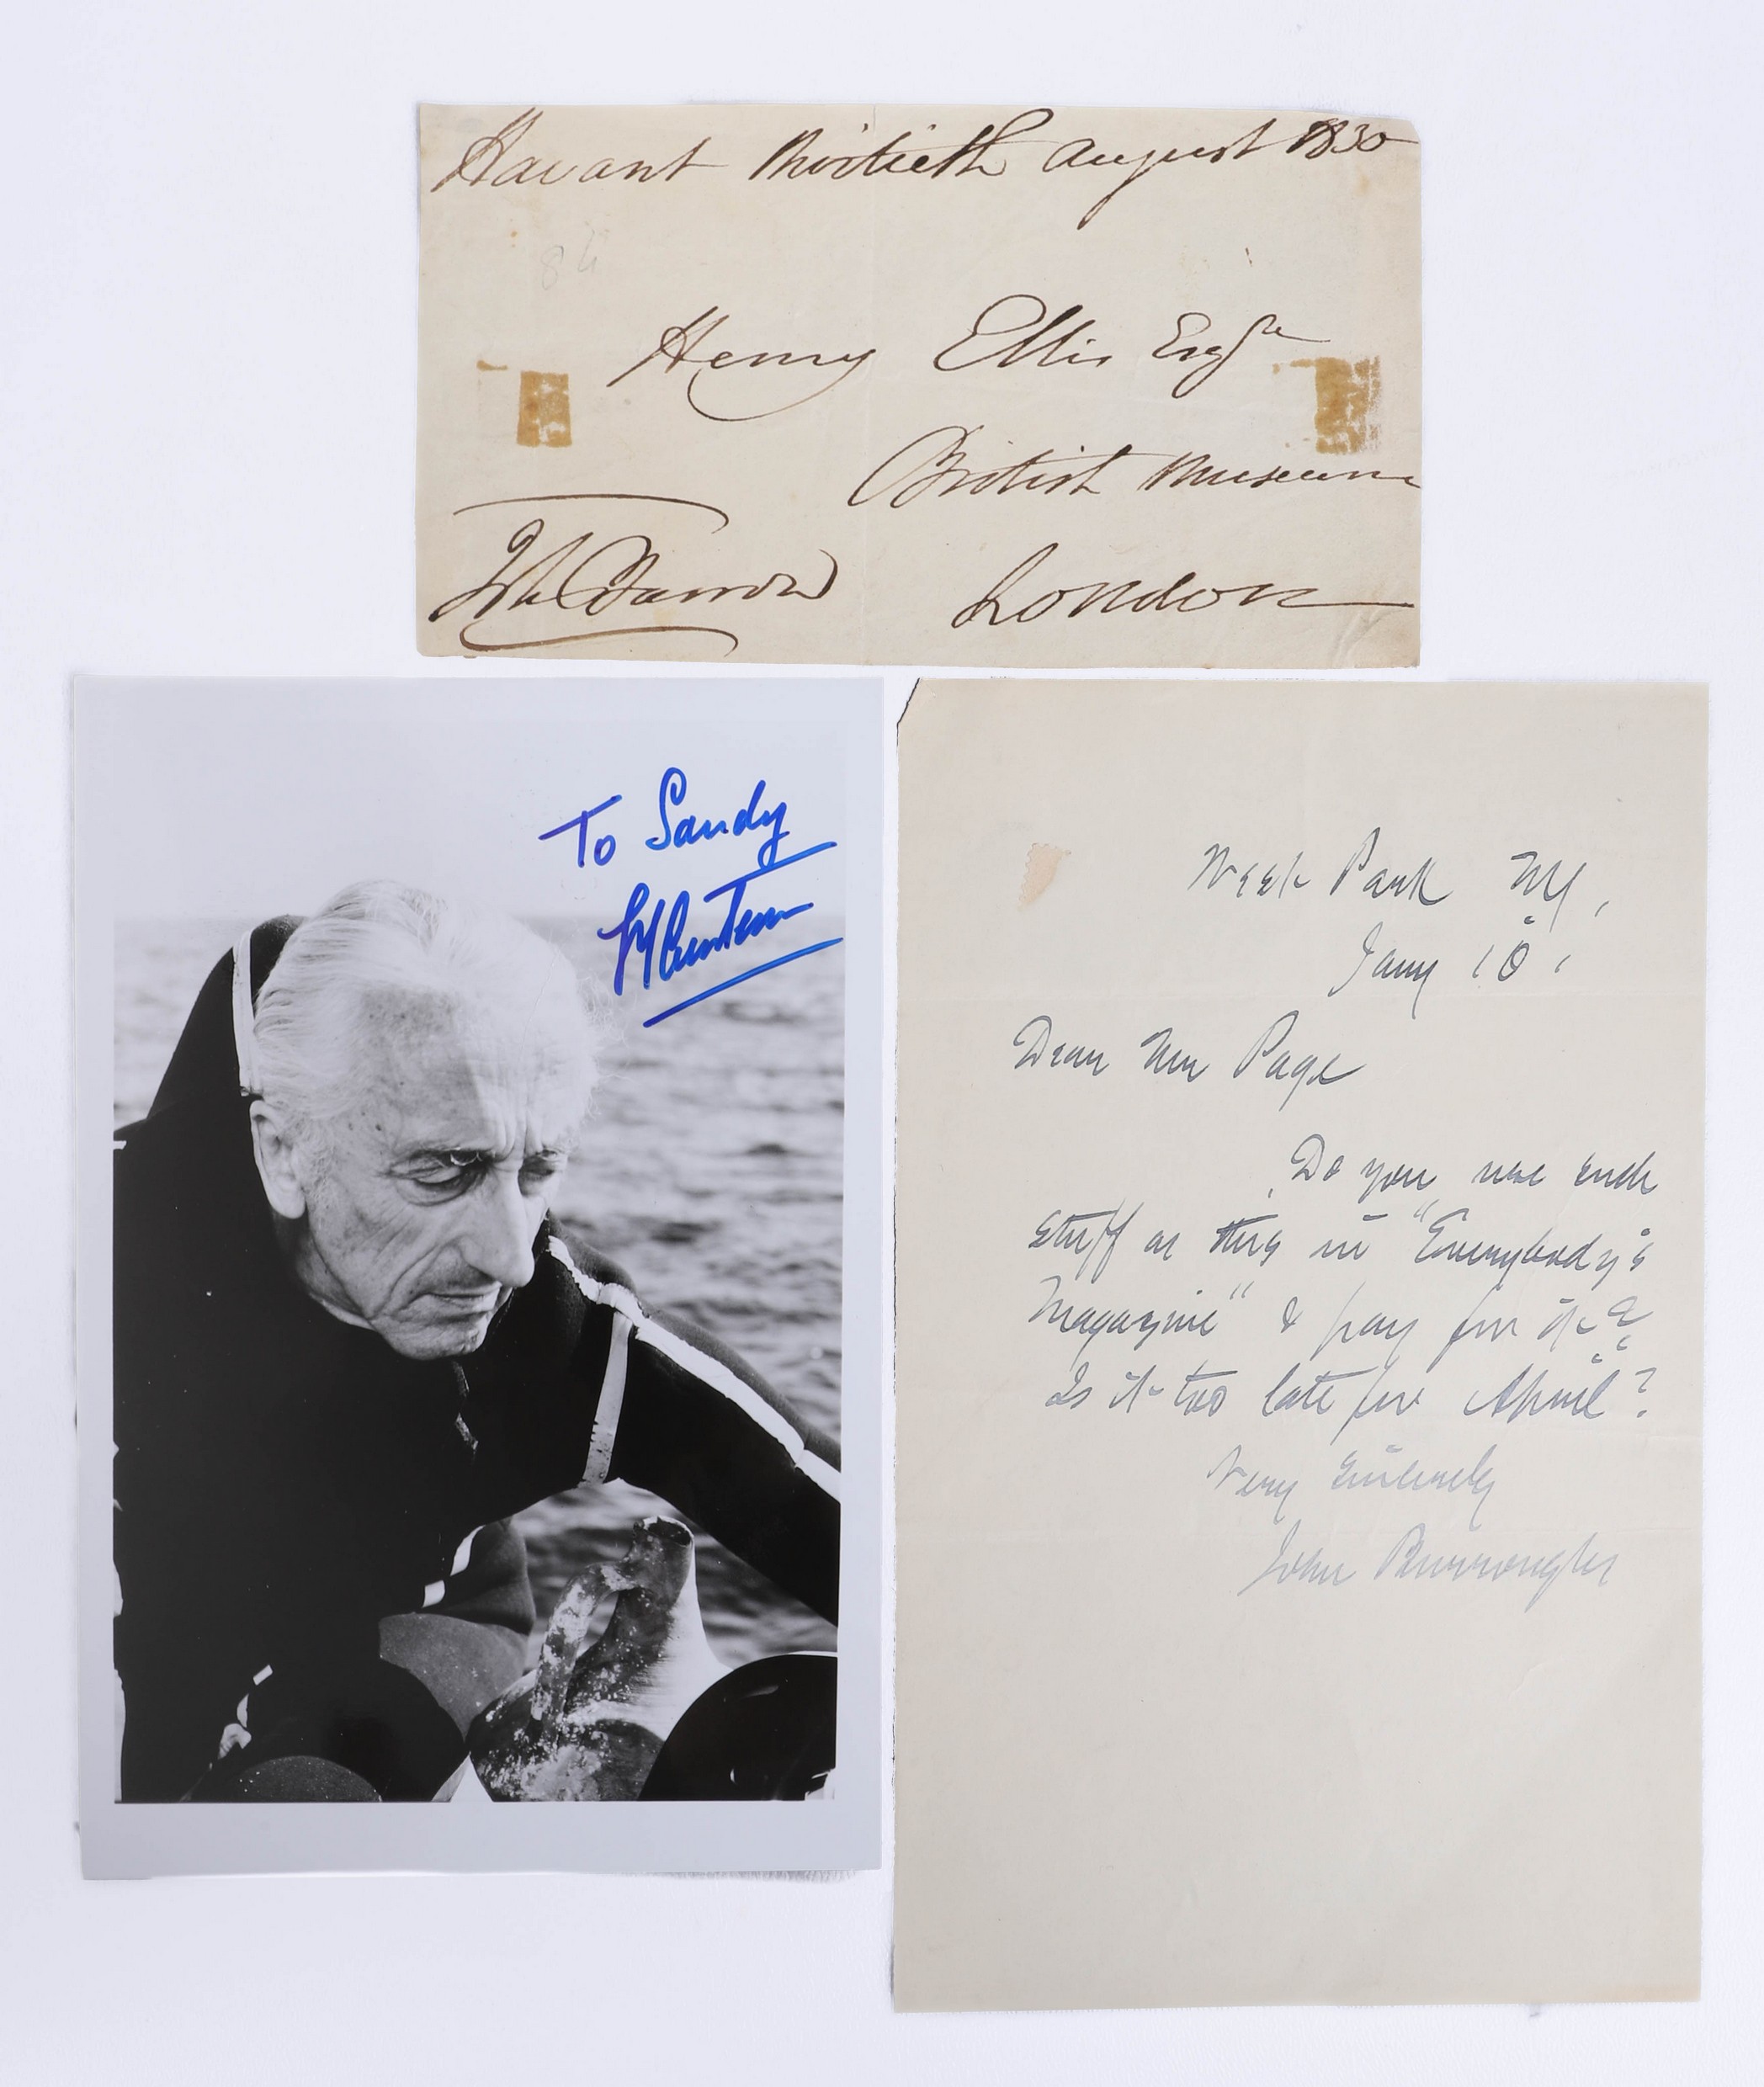 Havant thirtieth August 1830
84
Henry Ellis Esqre
British Museum
London
To Sandy
JYCousteau
West Park NY,
Jany 10.
Dear Mr Page
Do you use such
stuff as this in "Everybody's
Magazine" & pay for it?
Is it too late for April?
Very Sincerely
John Burroughs